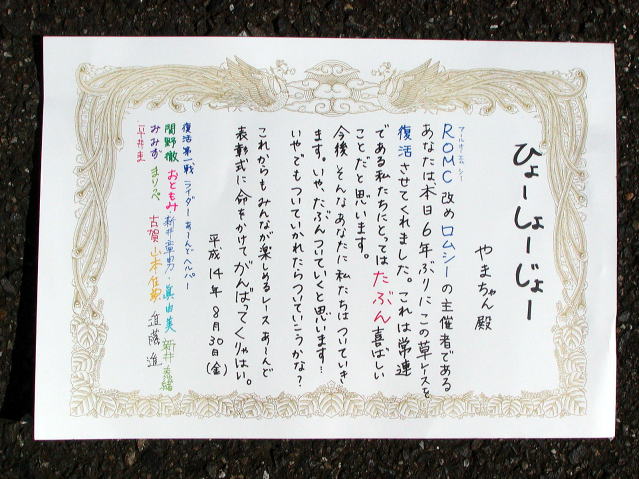 ひょーしょーじょー
やまちゃん殿
アールオーエムシー
ROMC 改め ロムシーの主催者である
あなたは本日6年ぶりにこの草レースを
復活させてくれました。これは常連
である私たちにとってはたぶん喜ばしい
ことだと思います。
今後、そんなあなたに私たちはついていき
ます。いや、たぶんついていくと思います!
いや、でもついていかれたらついていこうかな?
これからもみんなが楽しめるレースあーんど
表彰式に命をかけてがんばってくりゃはい。
平成14年8月30日(金)
復活第一戦 ライダーあーんどヘルパー
関野徹 おともみ 新井章男 眞由美 新井
みみずが まりべ 古賀 山本 近藤進
平井圭